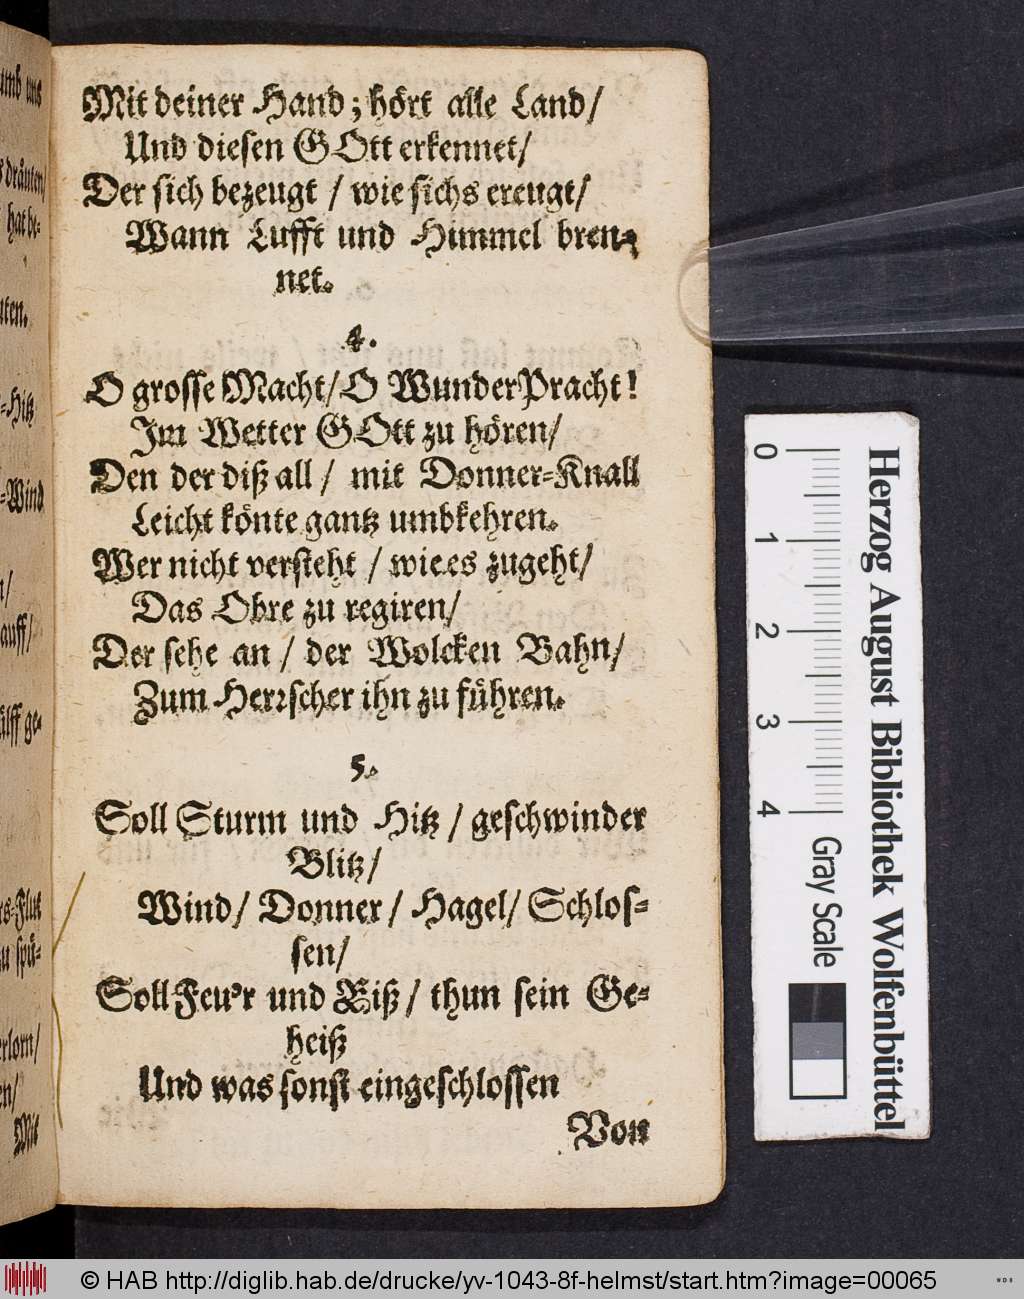 Mit deiner Hand; hört alle Land/
Und diesen GOtt erkennet/
Der sich bezeugt / wie sichs ereugt/
Wann Lufft und Himmel bren-
net.
4.
O grosse Macht/ O WunderPracht!
Im Wetter GOtt zu hören/
Den der diß all / mit Donner-Knall
Leicht könte gantz umbkehren.
Wer nicht versteht / wie es zugeht/
Das Obre zu regiren/
Der sehe an / der Wolcken Bahn/
Zum Herrscher ihn zu führen.
5.
Soll Sturm und Hitz / geschwinder
Blitz/
Wind/ Donner/ Hagel/ Schlos-
sen/
Soll Feu'r und Eiß / thun sein Ge-
heiß
Und was sonst eingeschlossen
Von
umb uns
dräuten/
hat be-
-Hitz
-Wind
auff/
ge-
-Flut
zu spü-
Mit
0 1 2 3 4
Gray Scale
Herzog August Bibliothek Wolfenbüttel
© HAB http://diglib.hab.de/drucke/yv-1043-8f-helmst/start.htm?image=00065